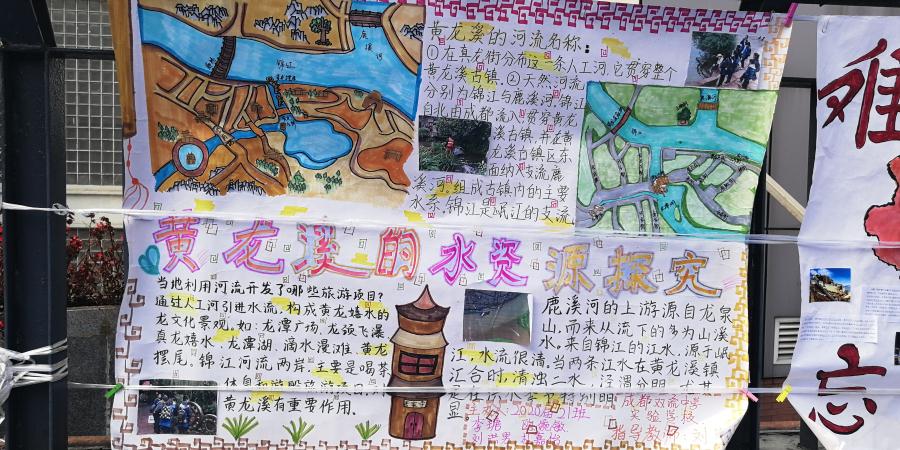 黄龙溪的河流名称：
①在真龙街分布这一条人工河，它贯穿整个
黄龙溪古镇，②天然河流
分别为锦江与鹿溪河，锦江
自北由成都流入，贯穿黄龙
溪古镇，并在黄
龙溪古镇区东
面纳入支流鹿
溪河，组成古镇内的主要
水系，锦江是岷江的支流
鹿溪河
锦江
黄龙溪的水资源探究
当地利用河流开发了哪些旅游项目？
通过人工河引进水流，构成黄龙嬉水的
龙文化景观。如：龙潭广场，龙颈飞瀑
真龙嬉水、龙潭湖、滴水漫滩、黄龙
摆尾。锦江河流两岸，主要是喝茶
黄龙溪有重要作用。
鹿溪河的上游源自龙泉
山，而来从流下的多为山溪
水，来自锦江的江水，源于岷
江，水流很清，当两条江水在黄龙溪镇
汇合时，清浊二水，泾渭分明，尤其
是
显
2020级21班
成都双流中学
实验学校
指导教师
难
忘